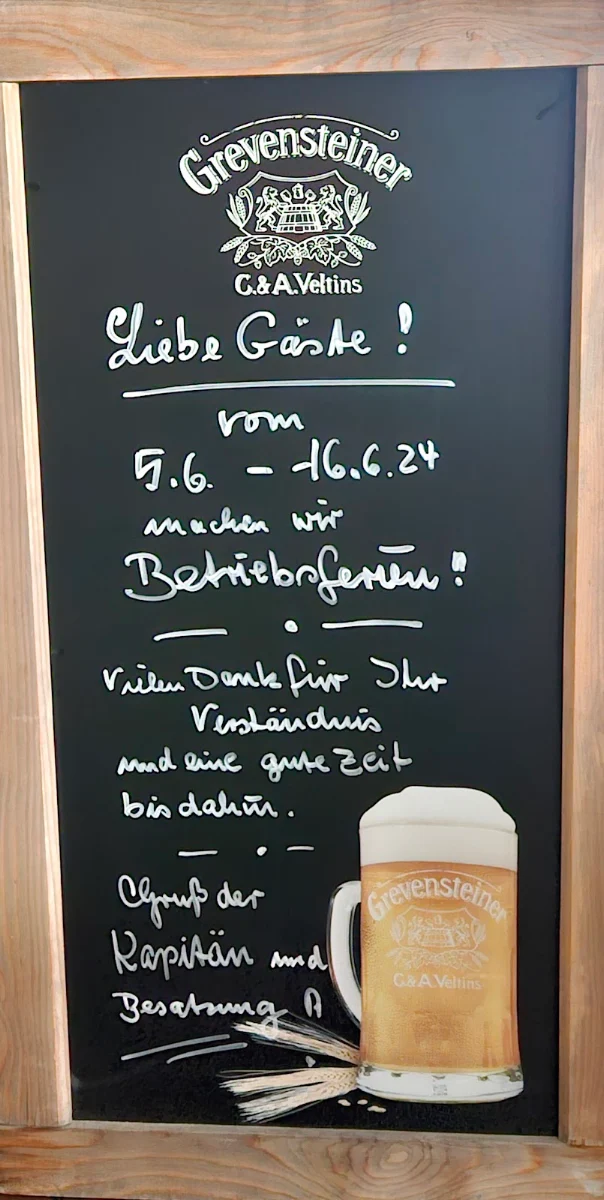 Grevensteiner
C.& A. Veltins
Liebe Gäste!
vom
5.6. - 16.6.24
machen wir
Betriebsferien!
Vielen Dank für Ihr
Verständnis
und eine gute Zeit
bis dahin.
Gruß der
Kapitän und
Besatzung
Grevensteiner
C.& A. Veltins